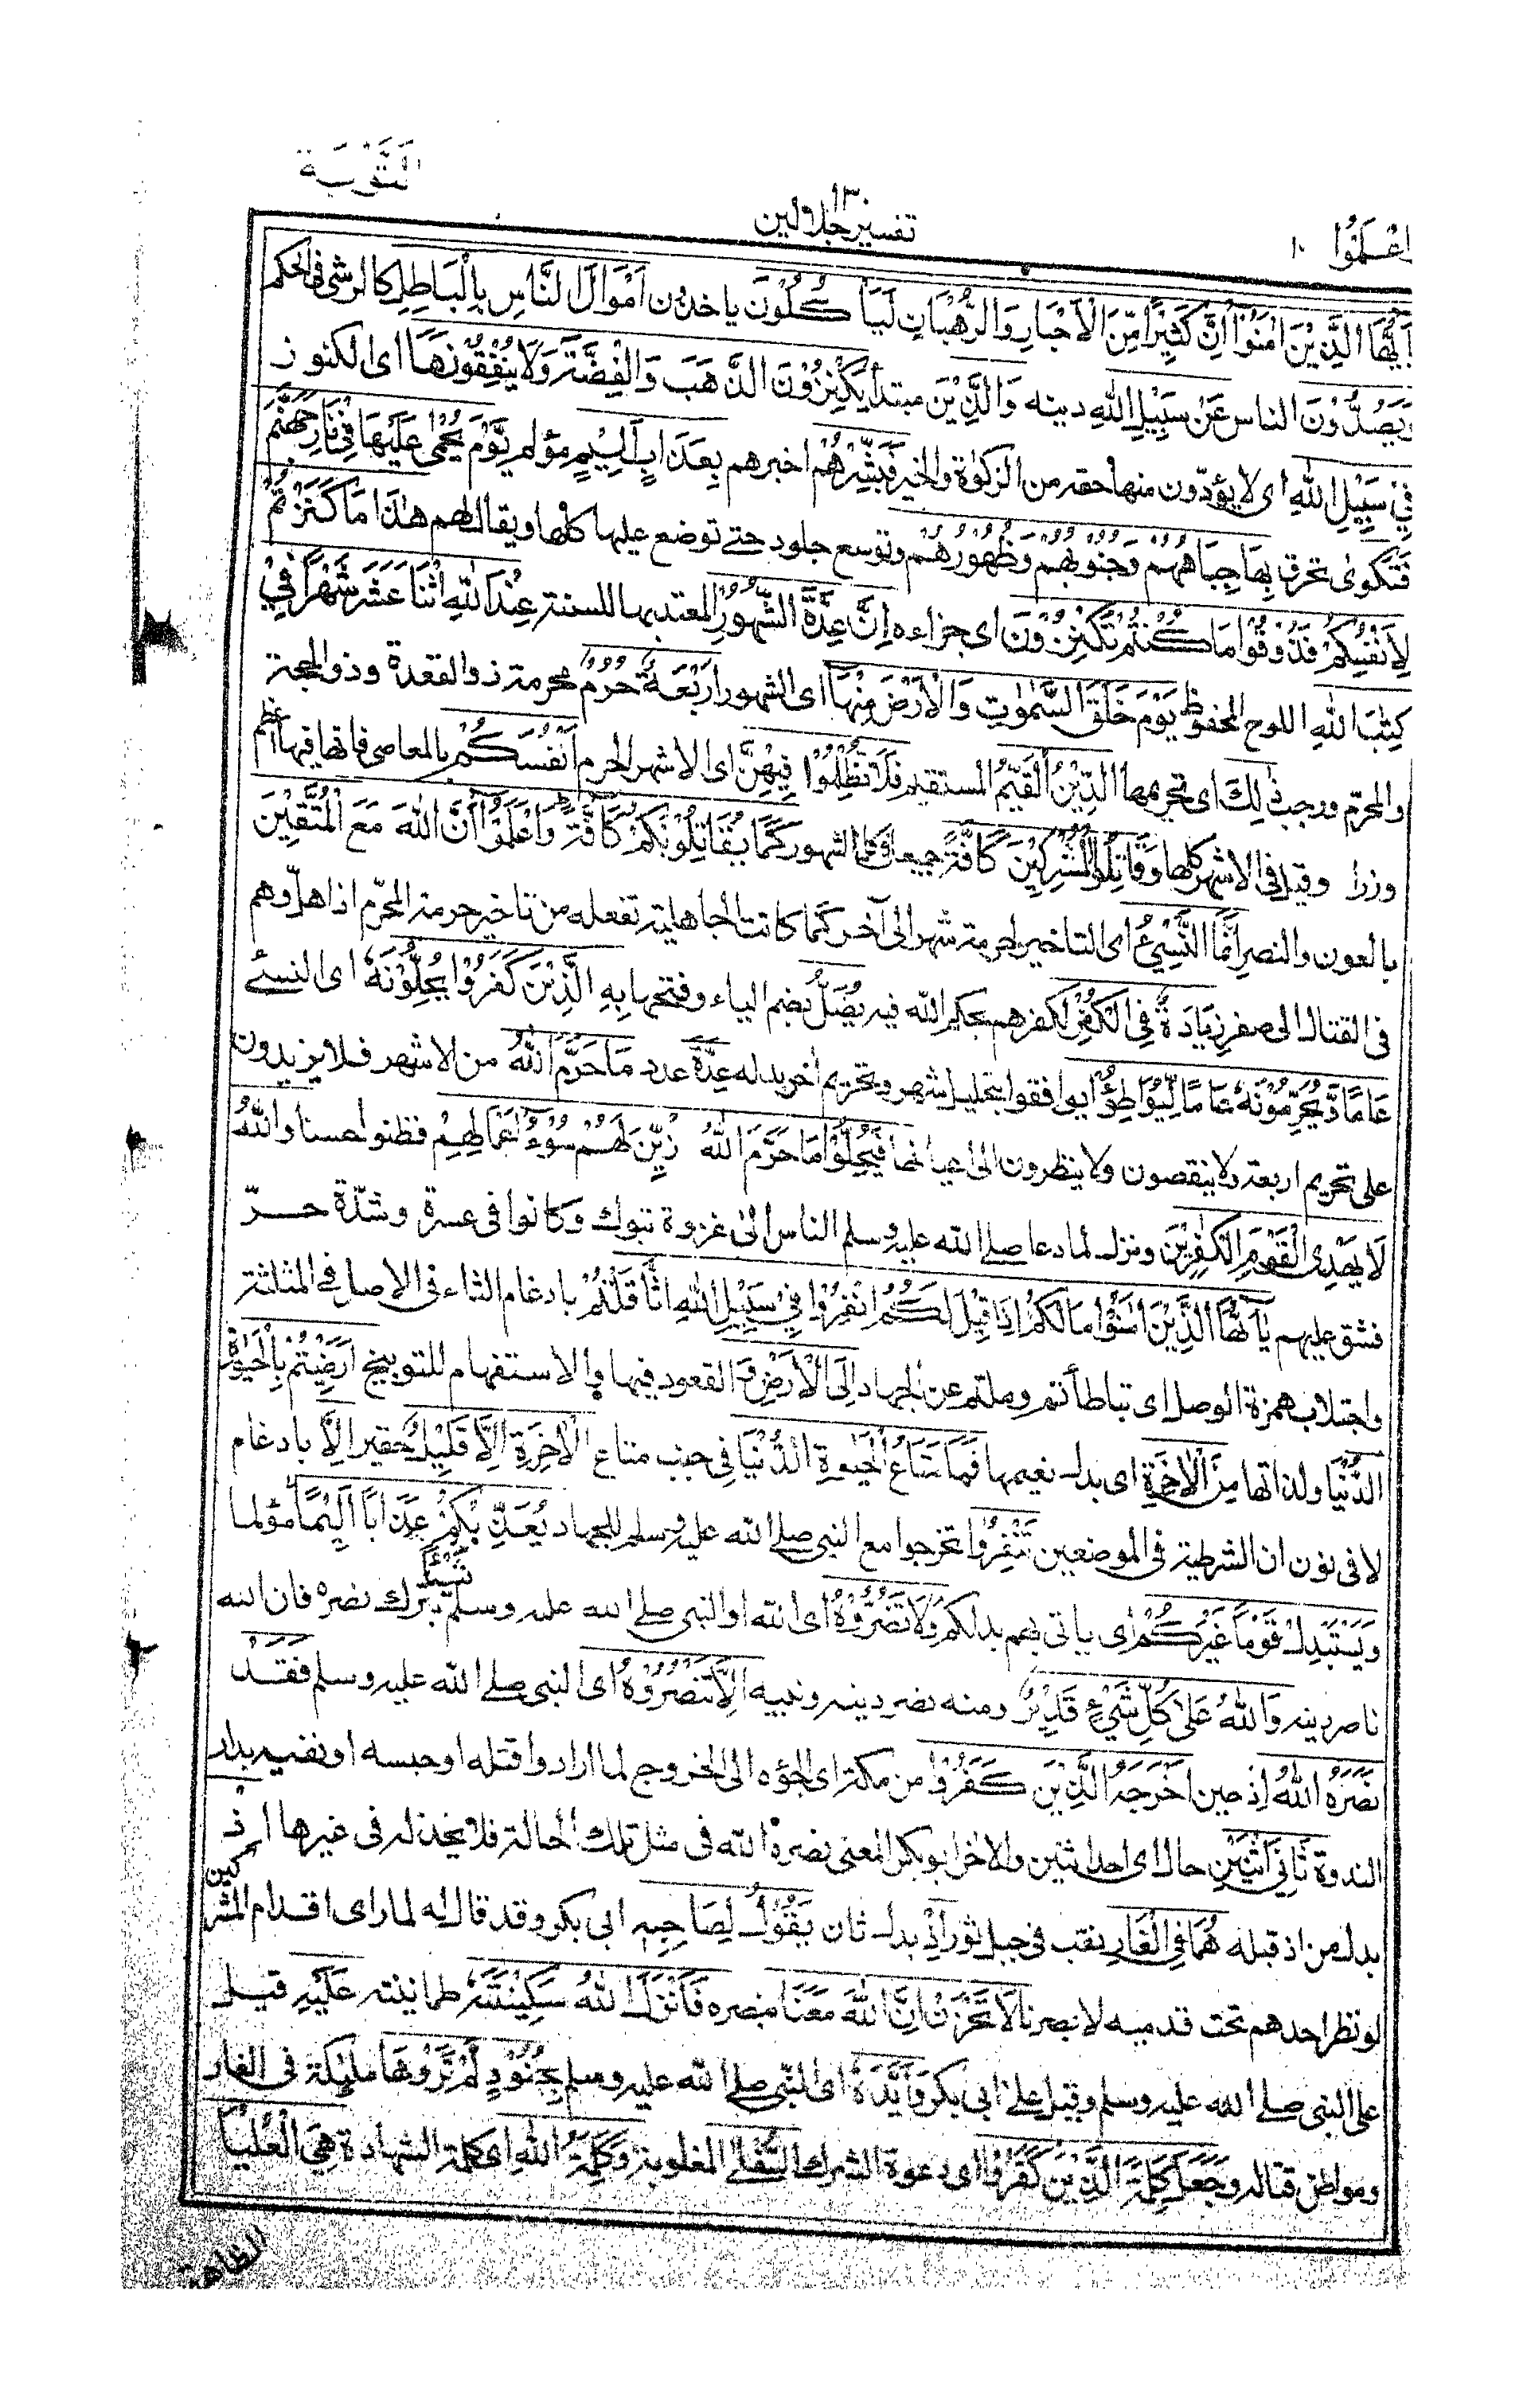 التَّوْبَة
١٣٠
اِعْلَمُوْا ١٠
تفسير جلالين
يٰۤاَيُّهَا الَّذِيْنَ اٰمَنُوْۤا اِنَّ كَثِيْرًا مِّنَ الْاَحْبَارِ وَالرُّهْبَانِ لَيَاْكُلُوْنَ ياخذون اَمْوَالَ النَّاسِ بِالْبَاطِلِ كالرشى فى الحكم
وَيَصُدُّوْنَ الناس عَنْ سَبِيْلِ اللّٰهِ دينه وَالَّذِيْنَ مبتدأ يَكْنِزُوْنَ الذَّهَبَ وَالْفِضَّةَ وَلَا يُنْفِقُوْنَهَا اى الكنوز
فِيْ سَبِيْلِ اللّٰهِ اى لا يؤدّون منها حقه من الزكوٰة والخير فَبَشِّرْهُمْ اخبرهم بِعَذَابٍ اَلِيْمٍ مؤلم يَّوْمَ يُحْمٰى عَلَيْهَا فِيْ نَارِ جَهَنَّمَ
فَتُكْوٰى تحرق بِهَا جِبَاهُهُمْ وَجُنُوْبُهُمْ وَظُهُوْرُهُمْ وتوسع جلود حتے توضع عليها كلها ويقال لهم هٰذَا مَا كَنَزْتُمْ
لِاَنْفُسِكُمْ فَذُوْقُوْا مَا كُنْتُمْ تَكْنِزُوْنَ اى جزاءه اِنَّ عِدَّةَ الشُّهُوْرِ المعتد بها للسنة عِنْدَ اللّٰهِ اثْنَا عَشَرَ شَهْرًا فِيْ
كِتٰبِ اللّٰهِ اللوح المحفوظ يَوْمَ خَلَقَ السَّمٰوٰتِ وَالْاَرْضَ مِنْهَاۤ اى الشهور اَرْبَعَةٌ حُرُمٌ محرمة ذو القعدة وذو الحجة
والمحرّم ورجب ذٰلِكَ اى تحريمها الدِّيْنُ الْقَيِّمُ المستقيم فَلَا تَظْلِمُوْا فِيْهِنَّ اى الاشهر الحرم اَنْفُسَكُمْ بالمعاصى فانها فيها اعظم
وزرا وقيل فى الاشهر كلها وَقَاتِلُوا الْمُشْرِكِيْنَ كَآفَّةً جميعا فى كل الشهور كَمَا يُقَاتِلُوْنَكُمْ كَآفَّةً وَاعْلَمُوْۤا اَنَّ اللّٰهَ مَعَ الْمُتَّقِيْنَ
بالعون والنصر اِنَّمَا النَّسِيْٓءُ اى التاخير لحرمة شهر الى آخر كما كانت الجاهلية تفعله من تاخير حرمة المحرّم اذا هلّ وهم
فى القتال الى صفر زِيَادَةٌ فِى الْكُفْرِ لكفرهم بحكم الله فيه يُضَلُّ بضم الياء وفتحها بِهِ الَّذِيْنَ كَفَرُوْا يُحِلُّوْنَهٗ اى النسئ
عَامًا وَّيُحَرِّمُوْنَهٗ عَامًا لِّيُوَاطِئُوْا يوافقوا بتحليل شهر وتحريم اخر بدله عِدَّةَ عدد مَا حَرَّمَ اللّٰهُ من الاشهر فلا يزيدون
على تحريم اربعة ولا ينقصون ولا ينظرون الى اعيانها فَيُحِلُّوْا مَا حَرَّمَ اللّٰهُ زُيِّنَ لَهُمْ سُوْٓءُ اَعْمَالِهِمْ فظنوا حسنا وَاللّٰهُ
لَا يَهْدِى الْقَوْمَ الْكٰفِرِيْنَ ونزل لما دعا صلے الله عليه وسلم الناس الى غزوة تبوك وكانوا فى عسرة وشدّة حرّ
فشق عليهم يٰۤاَيُّهَا الَّذِيْنَ اٰمَنُوْا مَا لَكُمْ اِذَا قِيْلَ لَكُمُ انْفِرُوْا فِيْ سَبِيْلِ اللّٰهِ اثَّاقَلْتُمْ بادغام الثاء فى الاصل فے المثلثة
واجتلاب همزة الوصل اى تباطأتم وملتم عن الجهاد اِلَى الْاَرْضِ والقعود فيها والاستفهام للتوبيخ اَرَضِيْتُمْ بِالْحَيٰوةِ
الدُّنْيَا ولذاتها مِنَ الْاٰخِرَةِ اى بدل نعيمها فَمَا مَتَاعُ الْحَيٰوةِ الدُّنْيَا فِى جنب متاع الْاٰخِرَةِ اِلَّا قَلِيْلٌ حقير اِلَّا بادغام
لا فى نون ان الشرطية فى الموضعين تَنْفِرُوْا تخرجوا مع النبى صلے الله عليه وسلم للجهاد يُعَذِّبْكُمْ عَذَابًا اَلِيْمًا مؤلما
وَيَسْتَبْدِلْ قَوْمًا غَيْرَكُمْ اى ياتى بهم بدلكم وَلَا تَضُرُّوْهُ اى الله او النبى صلے الله عليه وسلم شَيْئًا بترك نصره فان الله
ناصر دينه وَاللّٰهُ عَلٰى كُلِّ شَيْءٍ قَدِيْرٌ ومنه نصر دينه ونبيه اِلَّا تَنْصُرُوْهُ اى النبى صلے الله عليه وسلم فَقَدْ
نَصَرَهُ اللّٰهُ اِذْ حين اَخْرَجَهُ الَّذِيْنَ كَفَرُوْا من مكة اى الجؤه الى الخروج لما ارادوا قتله او حبسه او نفيه بدار
الندوة ثَانِيَ اثْنَيْنِ حال اى احد اثنين والاخر ابو بكر المعنى نصره الله فى مثل تلك الحالة فلا يخذله فى غيرها اِذْ
بدل من اذ قبله هُمَا فِى الْغَارِ نقب فى جبل ثور اِذْ بدل ثان يَقُوْلُ لِصَاحِبِهٖ ابى بكر وقد قال له لما راى اقدام المشركين
لو نظر احدهم تحت قدميه لابصرنا لَا تَحْزَنْ اِنَّ اللّٰهَ مَعَنَا بنصره فَاَنْزَلَ اللّٰهُ سَكِيْنَتَهٗ طمانينته عَلَيْهِ قيل
على النبى صلے الله عليه وسلم وقيل على ابى بكر وَاَيَّدَهٗ اى النبى صلے الله عليه وسلم بِجُنُوْدٍ لَّمْ تَرَوْهَا ملٰئكة فى الغار
ومواطن قتاله وَجَعَلَ كَلِمَةَ الَّذِيْنَ كَفَرُوا اى دعوة الشرك السُّفْلٰى المغلوبة وَكَلِمَةُ اللّٰهِ اى كلمة الشهادة هِيَ الْعُلْيَا
الظاهرة